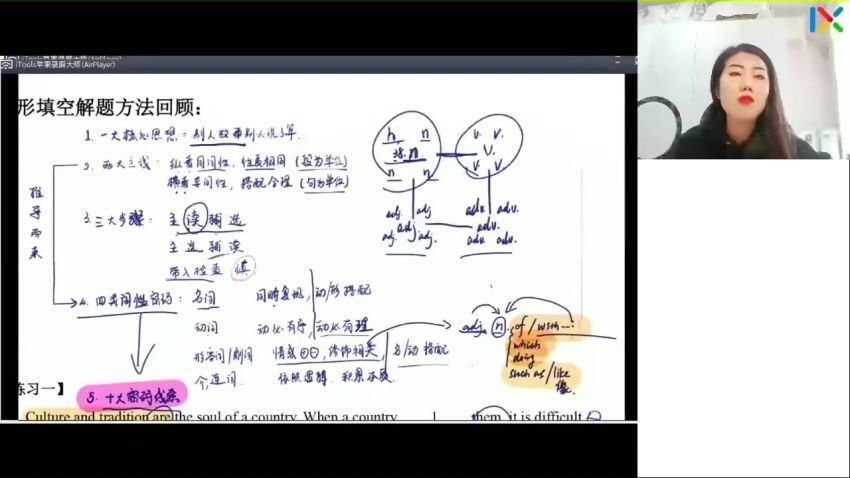 iTools苹果录屏大师(AirPlayer)
iTools苹果录屏大师(AirPlayer)
形填空解题方法回顾:
1. 一大核心思想:
2. 两大主线: 纵看同词性, 性质相同 (段为单位)
横看异词性, 搭配合理 (句为单位)
推导而来
3. 三大步骤: 主读辅选
主选辅读
带入检查 慎
4. 四类词性密码: 名词 同畴复现, 动/形搭配
动词 动必有序, 动必有理
形容词/副词 情感⊕⊖, 修饰相关, 名/动搭配
介,连词 依照逻辑.
5. 十大密码线索
n n
n n
v. v.
v.
v v
adj. adj
adj.
adj. adj.
adv. adv.
adv.
adv. adv.
adj. n. of / with …
which
doing
such as / like
像.
练习一】
Culture and tradition are the soul of a country. When a country 1 them, it is difficult